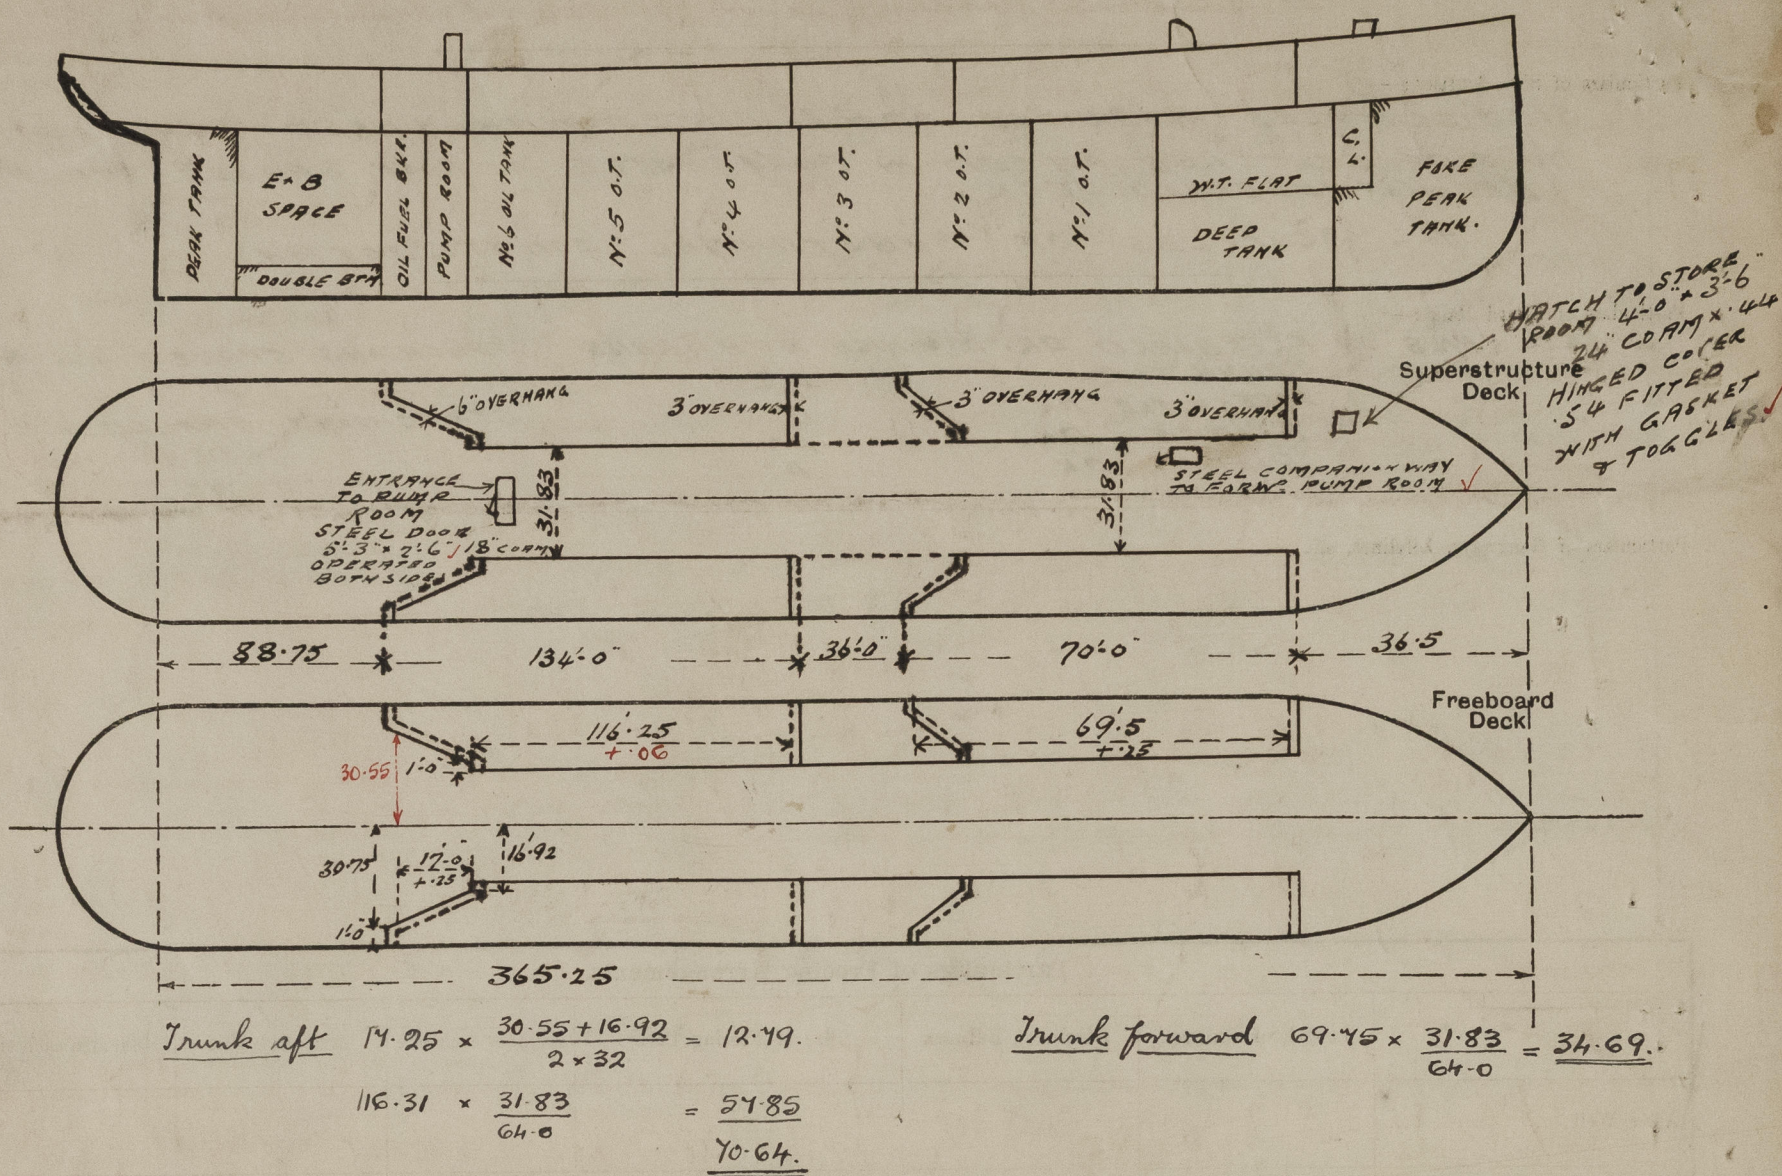 PEAK TANK
E + B
SPACE
DOUBLE BTM
OIL FUEL BKR.
PUMP ROOM
No. 6 OIL TANK
No. 5 O.T.
No. 4 O.T.
No. 3 O.T.
No. 2 O.T.
No. 1 O.T.
W.T. FLAT
DEEP
TANK
C.
L.
FORE
PEAK
TANK.
HATCH TO STORE
ROOM 4'-0" × 3'-6"
24" COAM × .44
HINGED COVER
.54 FITTED
WITH GASKET
& TOGGLES
Superstructure
Deck
6" OVERHANG
3" OVERHANG
3" OVERHANG
3" OVERHANG
ENTRANCE
TO PUMP
ROOM
STEEL DOOR
5'-3" × 2'-6" 18" COAM
OPERATED
BOTH SIDES
31.83
31.83
STEEL COMPANION WAY
TO FORWD. PUMP ROOM
88.75
134'-0"
36'-0"
70'-0"
36.5
Freeboard
Deck
116'.25
+ .06
69'.5
+ .25
30.55
1'-0"
30.75
17'-0"
+ .25
16'.92
1'-0"
365.25
Trunk aft 17.25 × 30.55 + 16.92 = 12.79.
2 × 32
116.31 × 31.83 = 57.85
64.0
70.64.
Trunk forward 69.75 × 31.83 = 34.69.
64.0